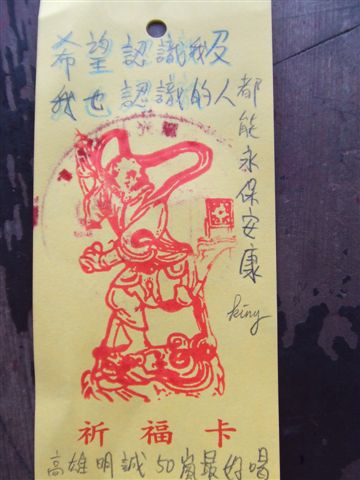 希望認識我及
我也認識的人都
能永保安康
kiny
祈福卡
高雄明誠50嵐最好喝